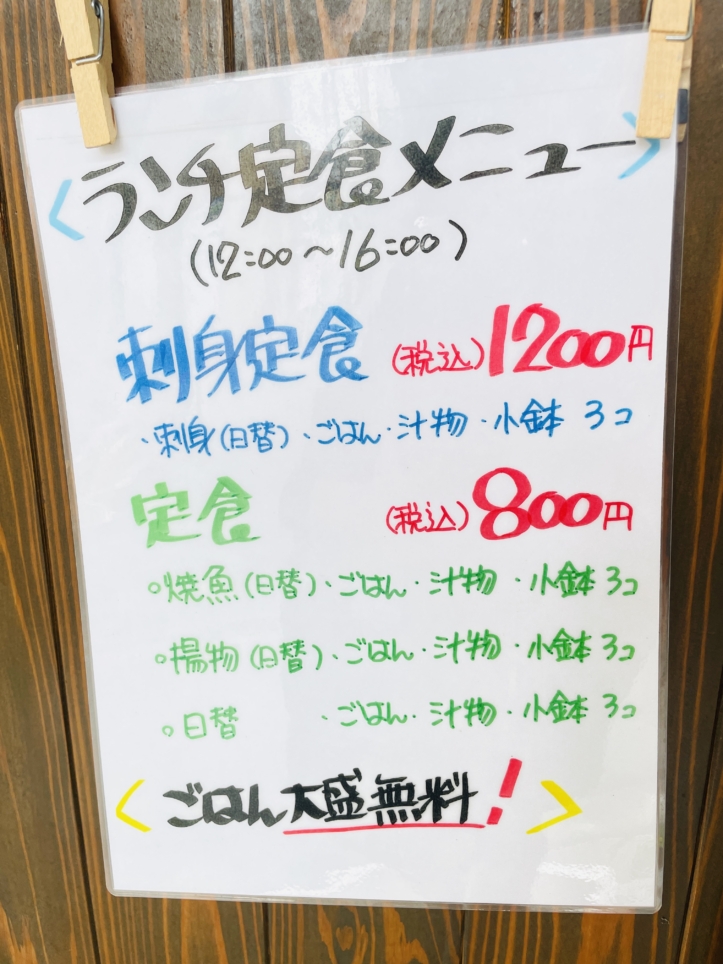 <ランチ定食メニュー>
(12:00〜16:00)
刺身定食 (税込)1200円
・刺身(日替)・ごはん・汁物・小鉢 3コ
定食 (税込)800円
○焼魚(日替)・ごはん・汁物・小鉢 3コ
○揚物(日替)・ごはん・汁物・小鉢 3コ
○日替 ・ごはん・汁物・小鉢 3コ
<ごはん大盛無料!>